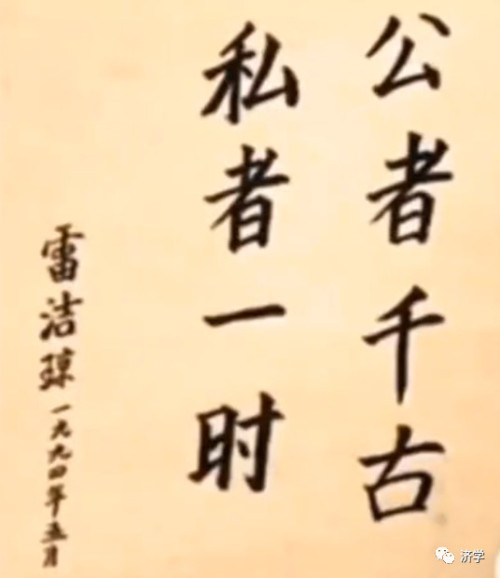 公者千古
私者一时
雷洁琼一九九四年五月
济学